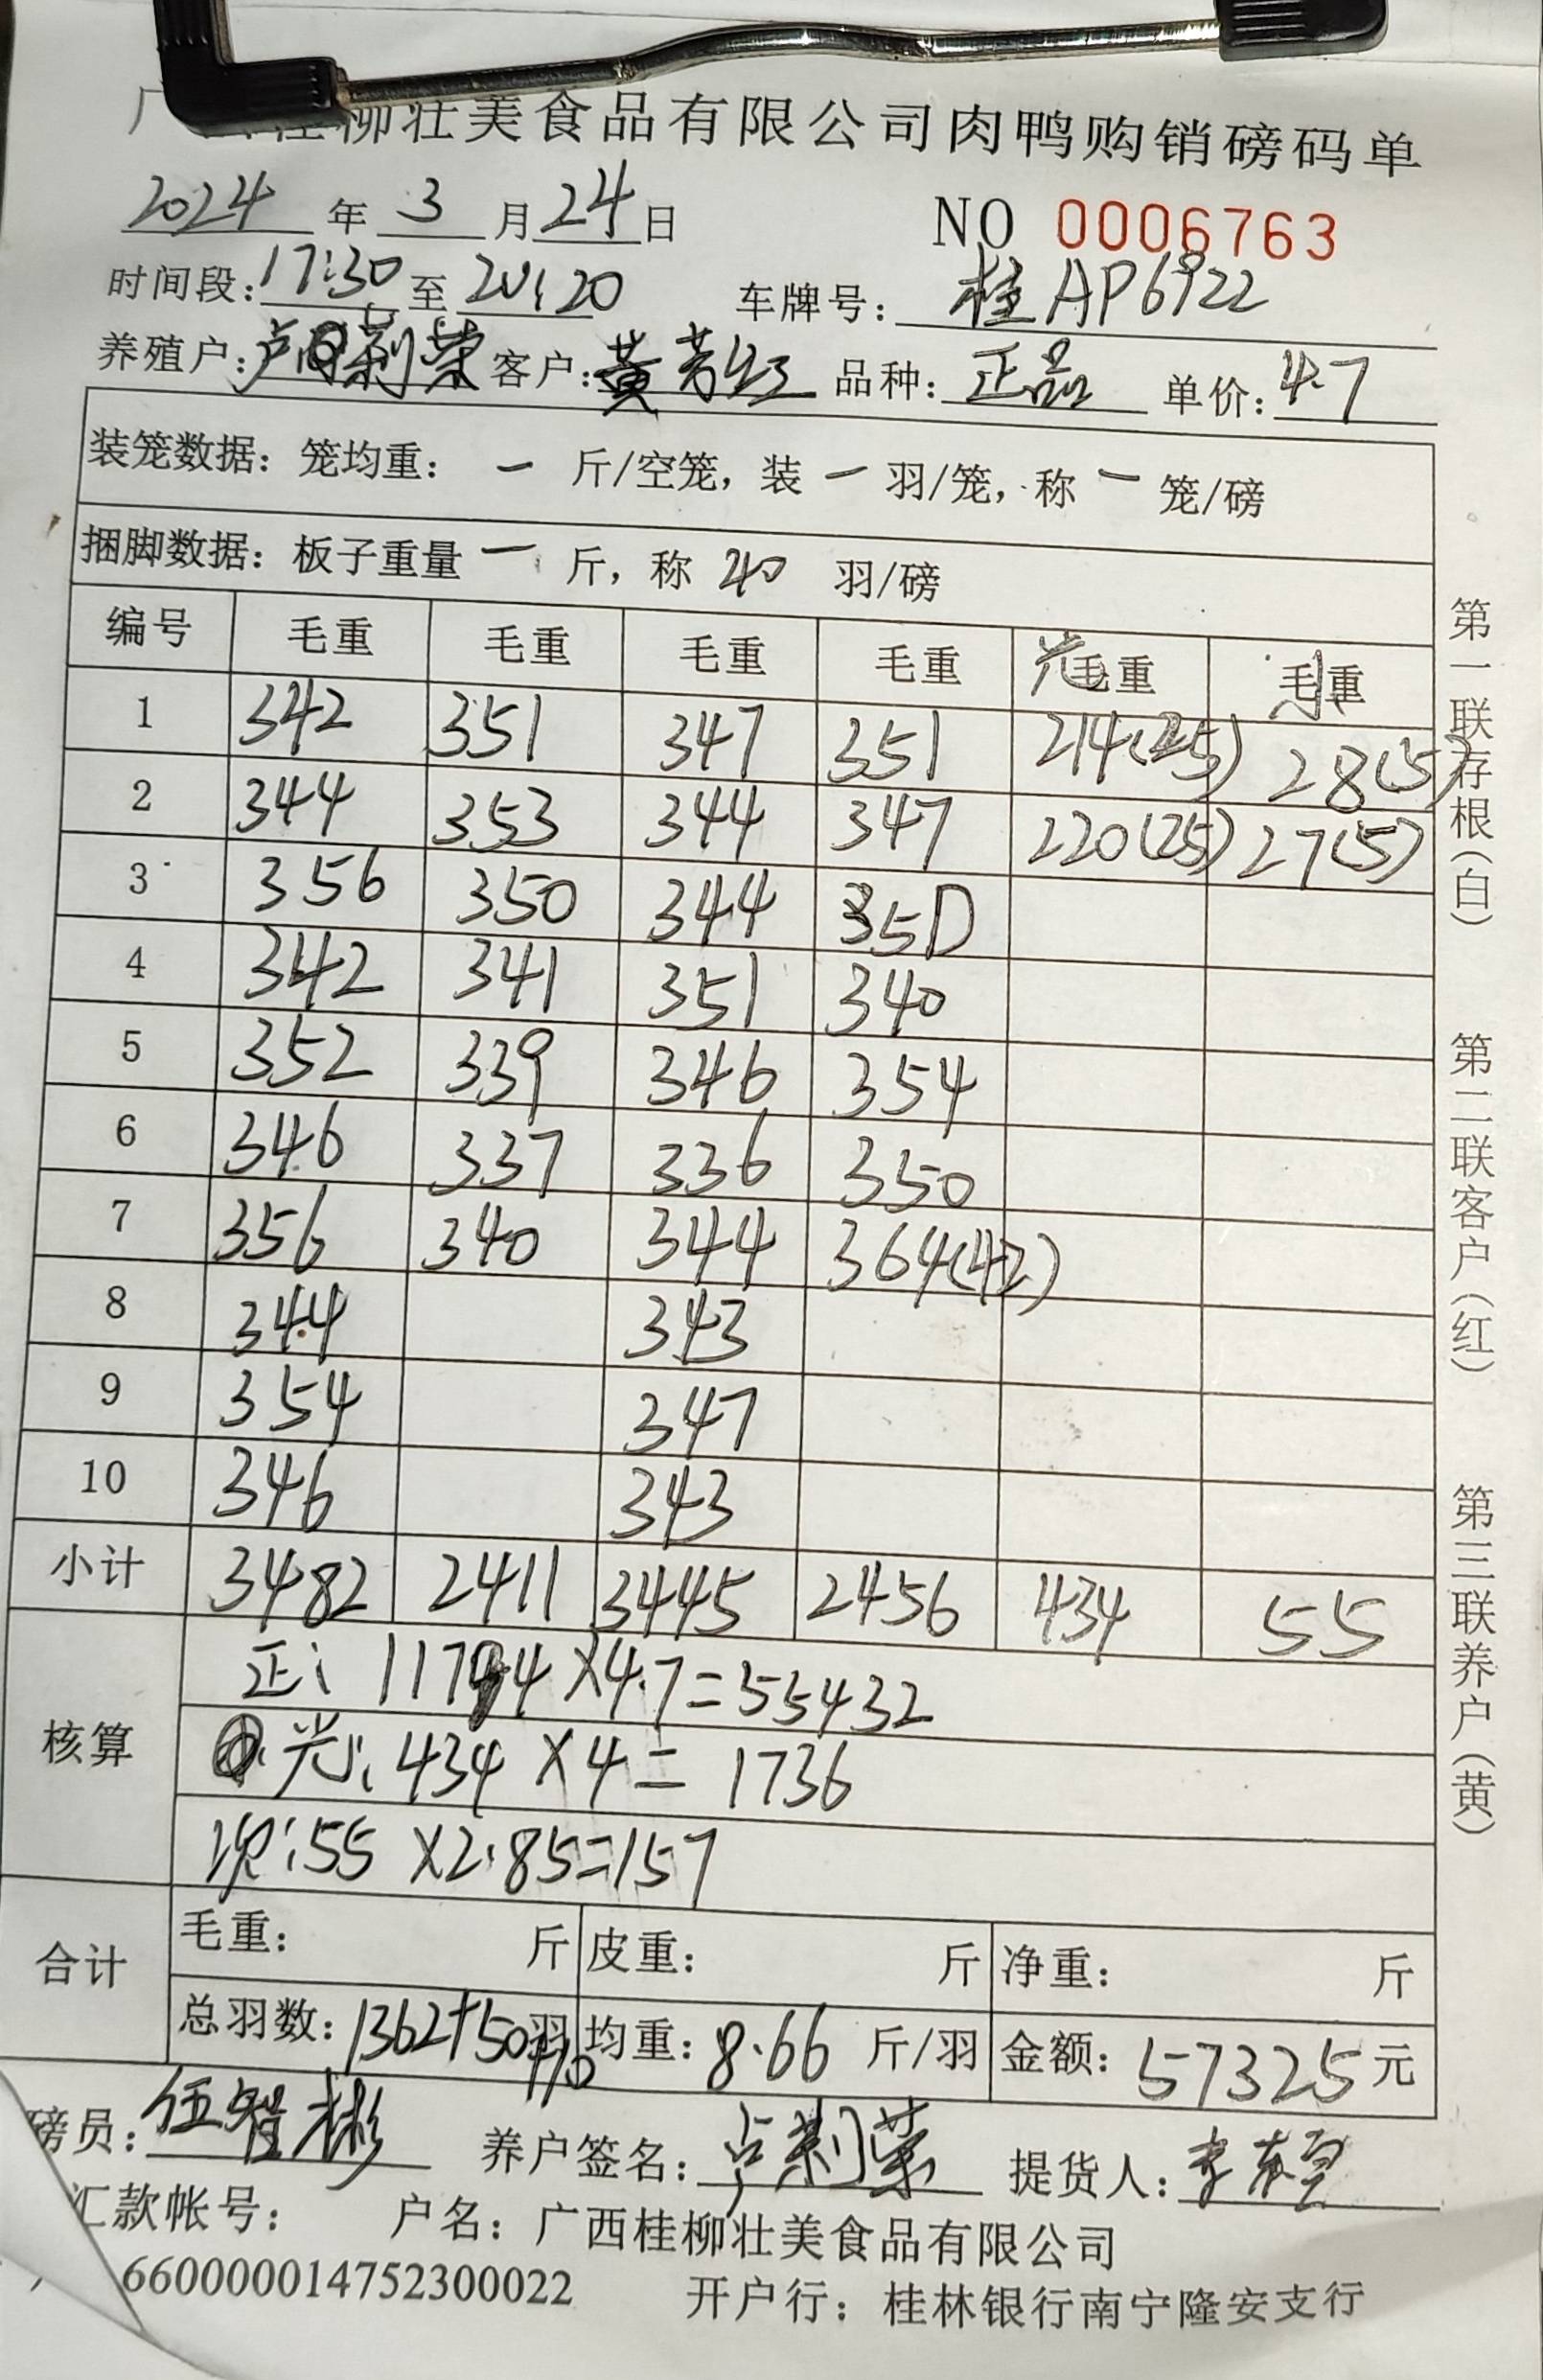 广 桂柳壮美食品有限公司肉鸭购销磅码单
2024 年 3 月 24 日 NO 0006763
时间段:17:30 至 20:20 车牌号: 桂AP6922
养殖户: 客户:黄芳红 品种:正品 单价:4.7
装笼数据: 笼均重: 一 斤/空笼, 装 一 羽/笼, 称 一 笼/磅
捆脚数据: 板子重量 一 斤, 称 40 羽/磅
编号 毛重 毛重 毛重 毛重 光毛重 毛重
1 342 351 347 351 214(25) 28(5)
2 344 353 344 347 220(25) 27(5)
3 356 350 344 350
4 342 341 351 340
5 352 339 346 354
6 346 337 336 350
7 356 340 344 364(42)
8 344 343
9 354 347
10 346 343
小计 3482 2411 3445 2456 434 55
核算
正: 11794×4.7=55432
光: 434×4=1736
次:55×2.85=157
合计
毛重: 斤 皮重: 斤 净重: 斤
总羽数:1362+50+10羽 均重:8.66 斤/羽 金额:57325元
磅员: 养户签名: 提货人:
汇款帐号: 户名: 广西桂柳壮美食品有限公司
660000014752300022 开户行: 桂林银行南宁隆安支行
第一联存根(白)
第二联客户(红)
第三联养户(黄)